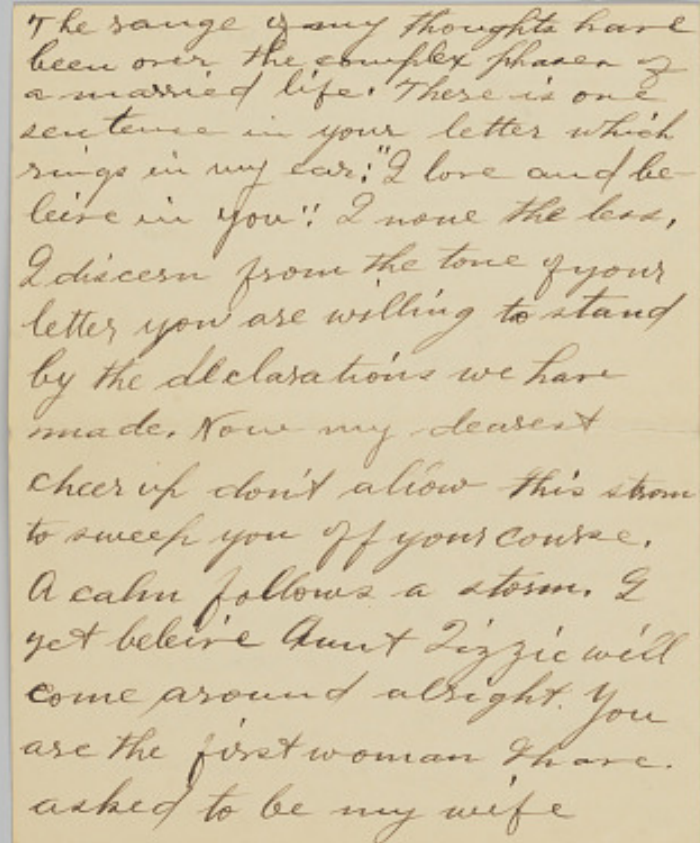 The range of my thoughts have
been over the complex phases of
a married life. There is one
sentence in your letter which
rings in my ear: "I love and be-
leive in you". I none the less,
I discern from the tone of your
letter you are willing to stand
by the declarations we have
made. Now my dearest
cheer up don't allow this strom
to sweep you off your course.
A calm follows a storm. I
yet beleive Aunt Lizzie will
come around alright. You
are the first woman I have.
asked to be my wife